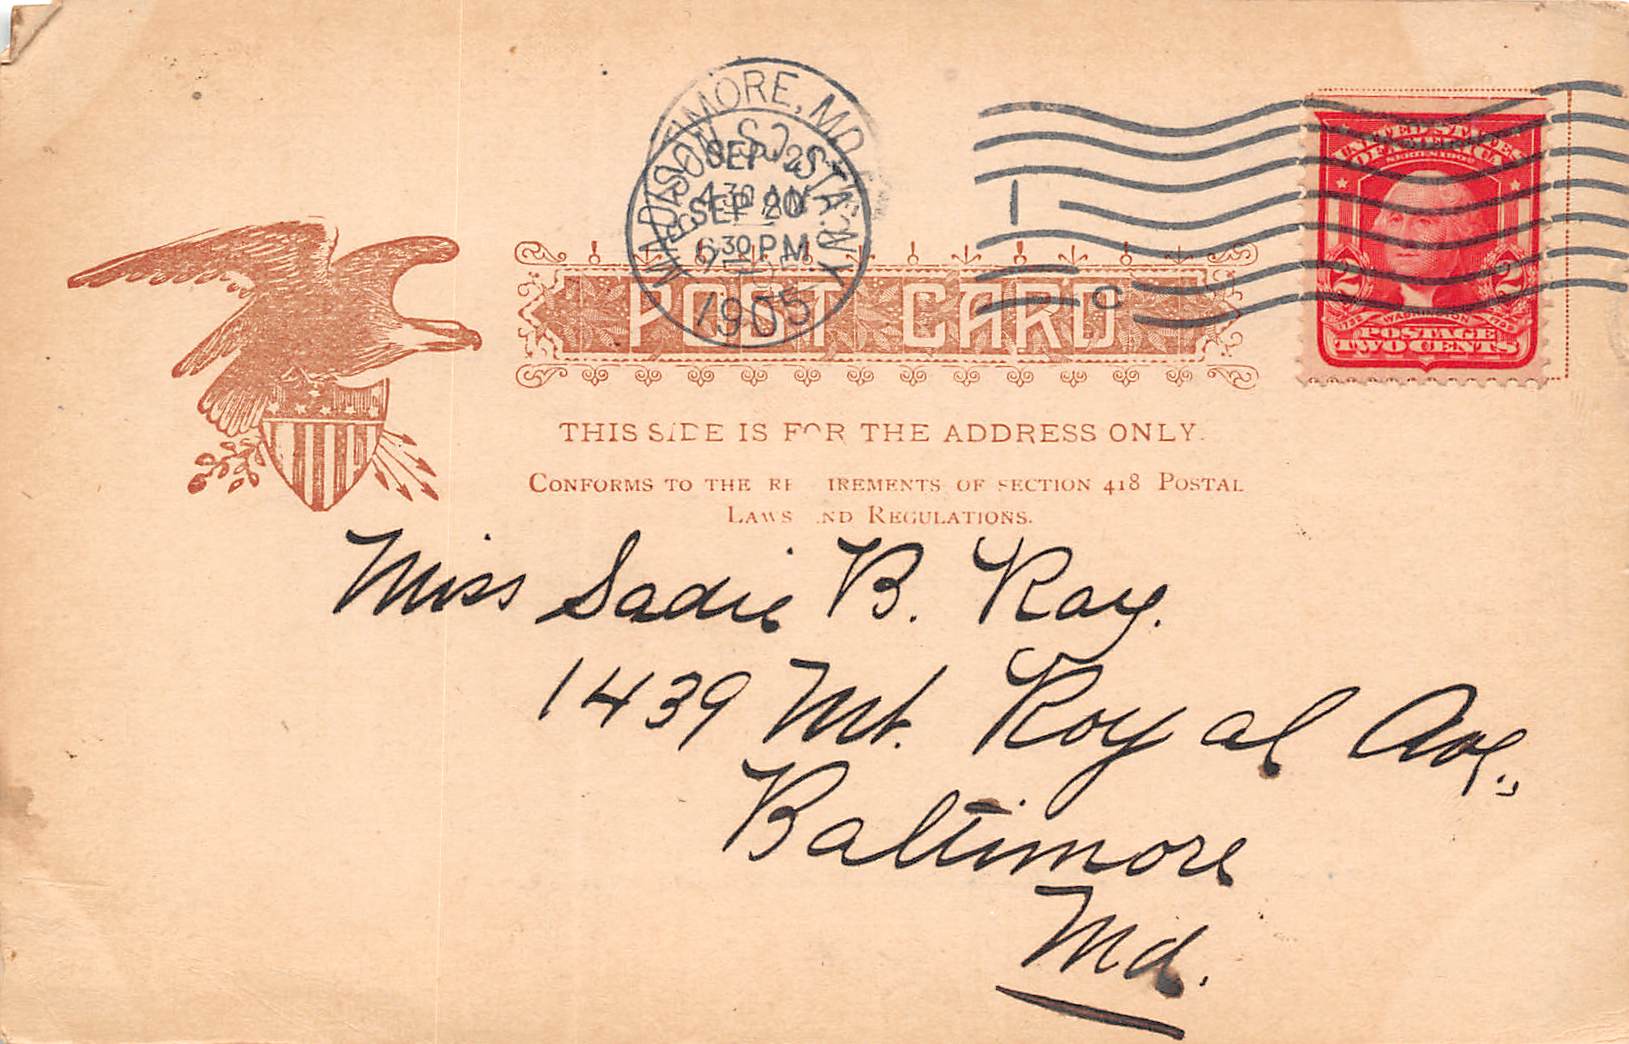 BALTIMORE, MD.
SEP 21
4 30 AM
MADISON SQ. STA. N.Y.
SEP 20
6 30 PM
1905
1
C
UNITED STATES
OF AMERICA
SERIES 1902
2 2
1732 WASHINGTON 1799
POSTAGE
TWO CENTS
POST CARD
THIS SIDE IS FOR THE ADDRESS ONLY.
CONFORMS TO THE REQUIREMENTS OF SECTION 418 POSTAL
LAWS AND REGULATIONS.
Miss Sadie B. Ray.
1439 Mt. Royal Ave.,
Baltimore
Md.